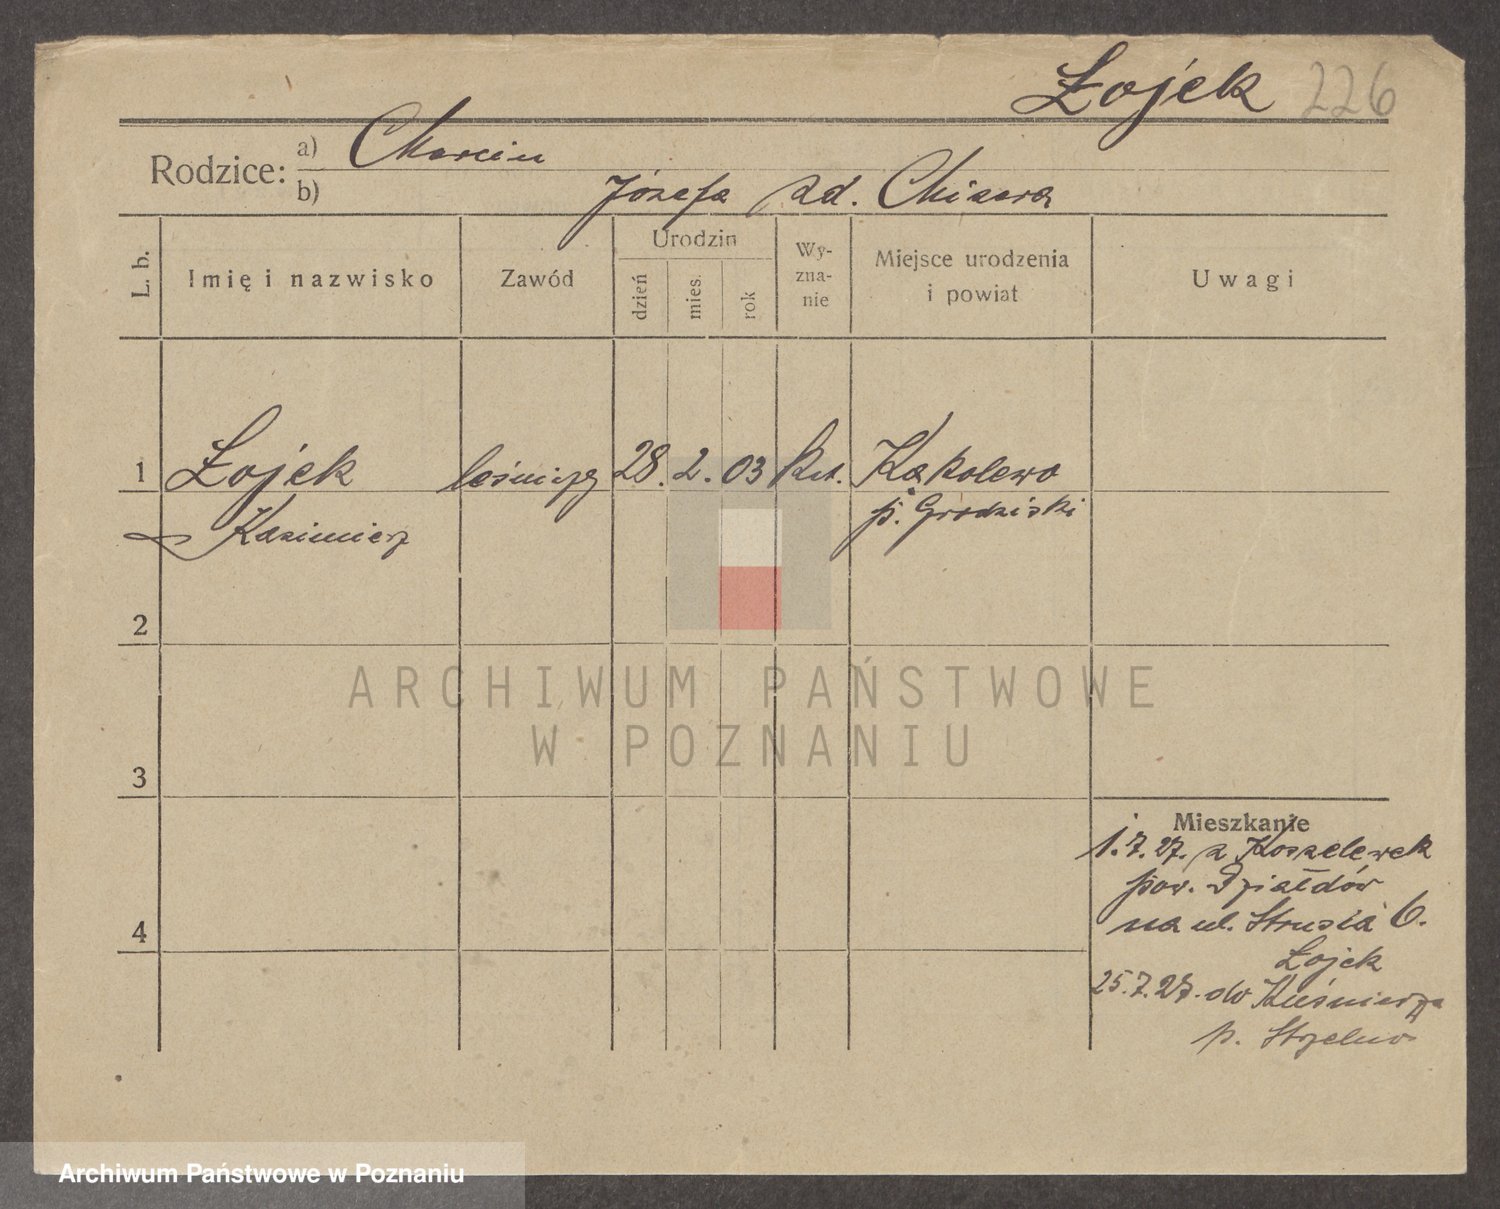 Łojek 226
Rodzice:
a) Marcin
b) Józefa zd. Misora
L. b.
Imię i nazwisko
Zawód
Urodzin
dzień
mies.
rok
Wy-
zna-
nie
Miejsce urodzenia
i powiat
Uwagi
1 Łojek leśniczy 28. 2. 03 kat. Kąkolewo
Kazimierz p. Grodziski
2
ARCHIWUM PAŃSTWOWE
W POZNANIU
3
Mieszkanie
1.7.27. z Koszelewek
pow. Działdów
4 na ul. Strusia 6.
Łojek
25.7.27. do Kuśnierza
p. Strzelno
Archiwum Państwowe w Poznaniu